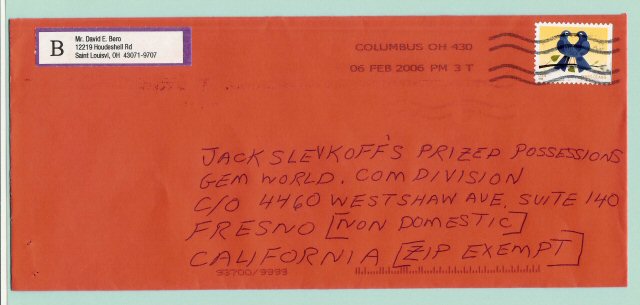 B
Mr. David E. Bero
12219 Houdeshell Rd
Saint Louisvl, OH 43071-9707
COLUMBUS OH 430
06 FEB 2006 PM 3 T
JACK SLEVKOFF'S PRIZED POSSESSIONS
GEM WORLD. COM DIVISION
C/O 4460 WESTSHAW AVE, SUITE 140
FRESNO [NON DOMESTIC]
CALIFORNIA [ZIP EXEMPT]
93700/9999